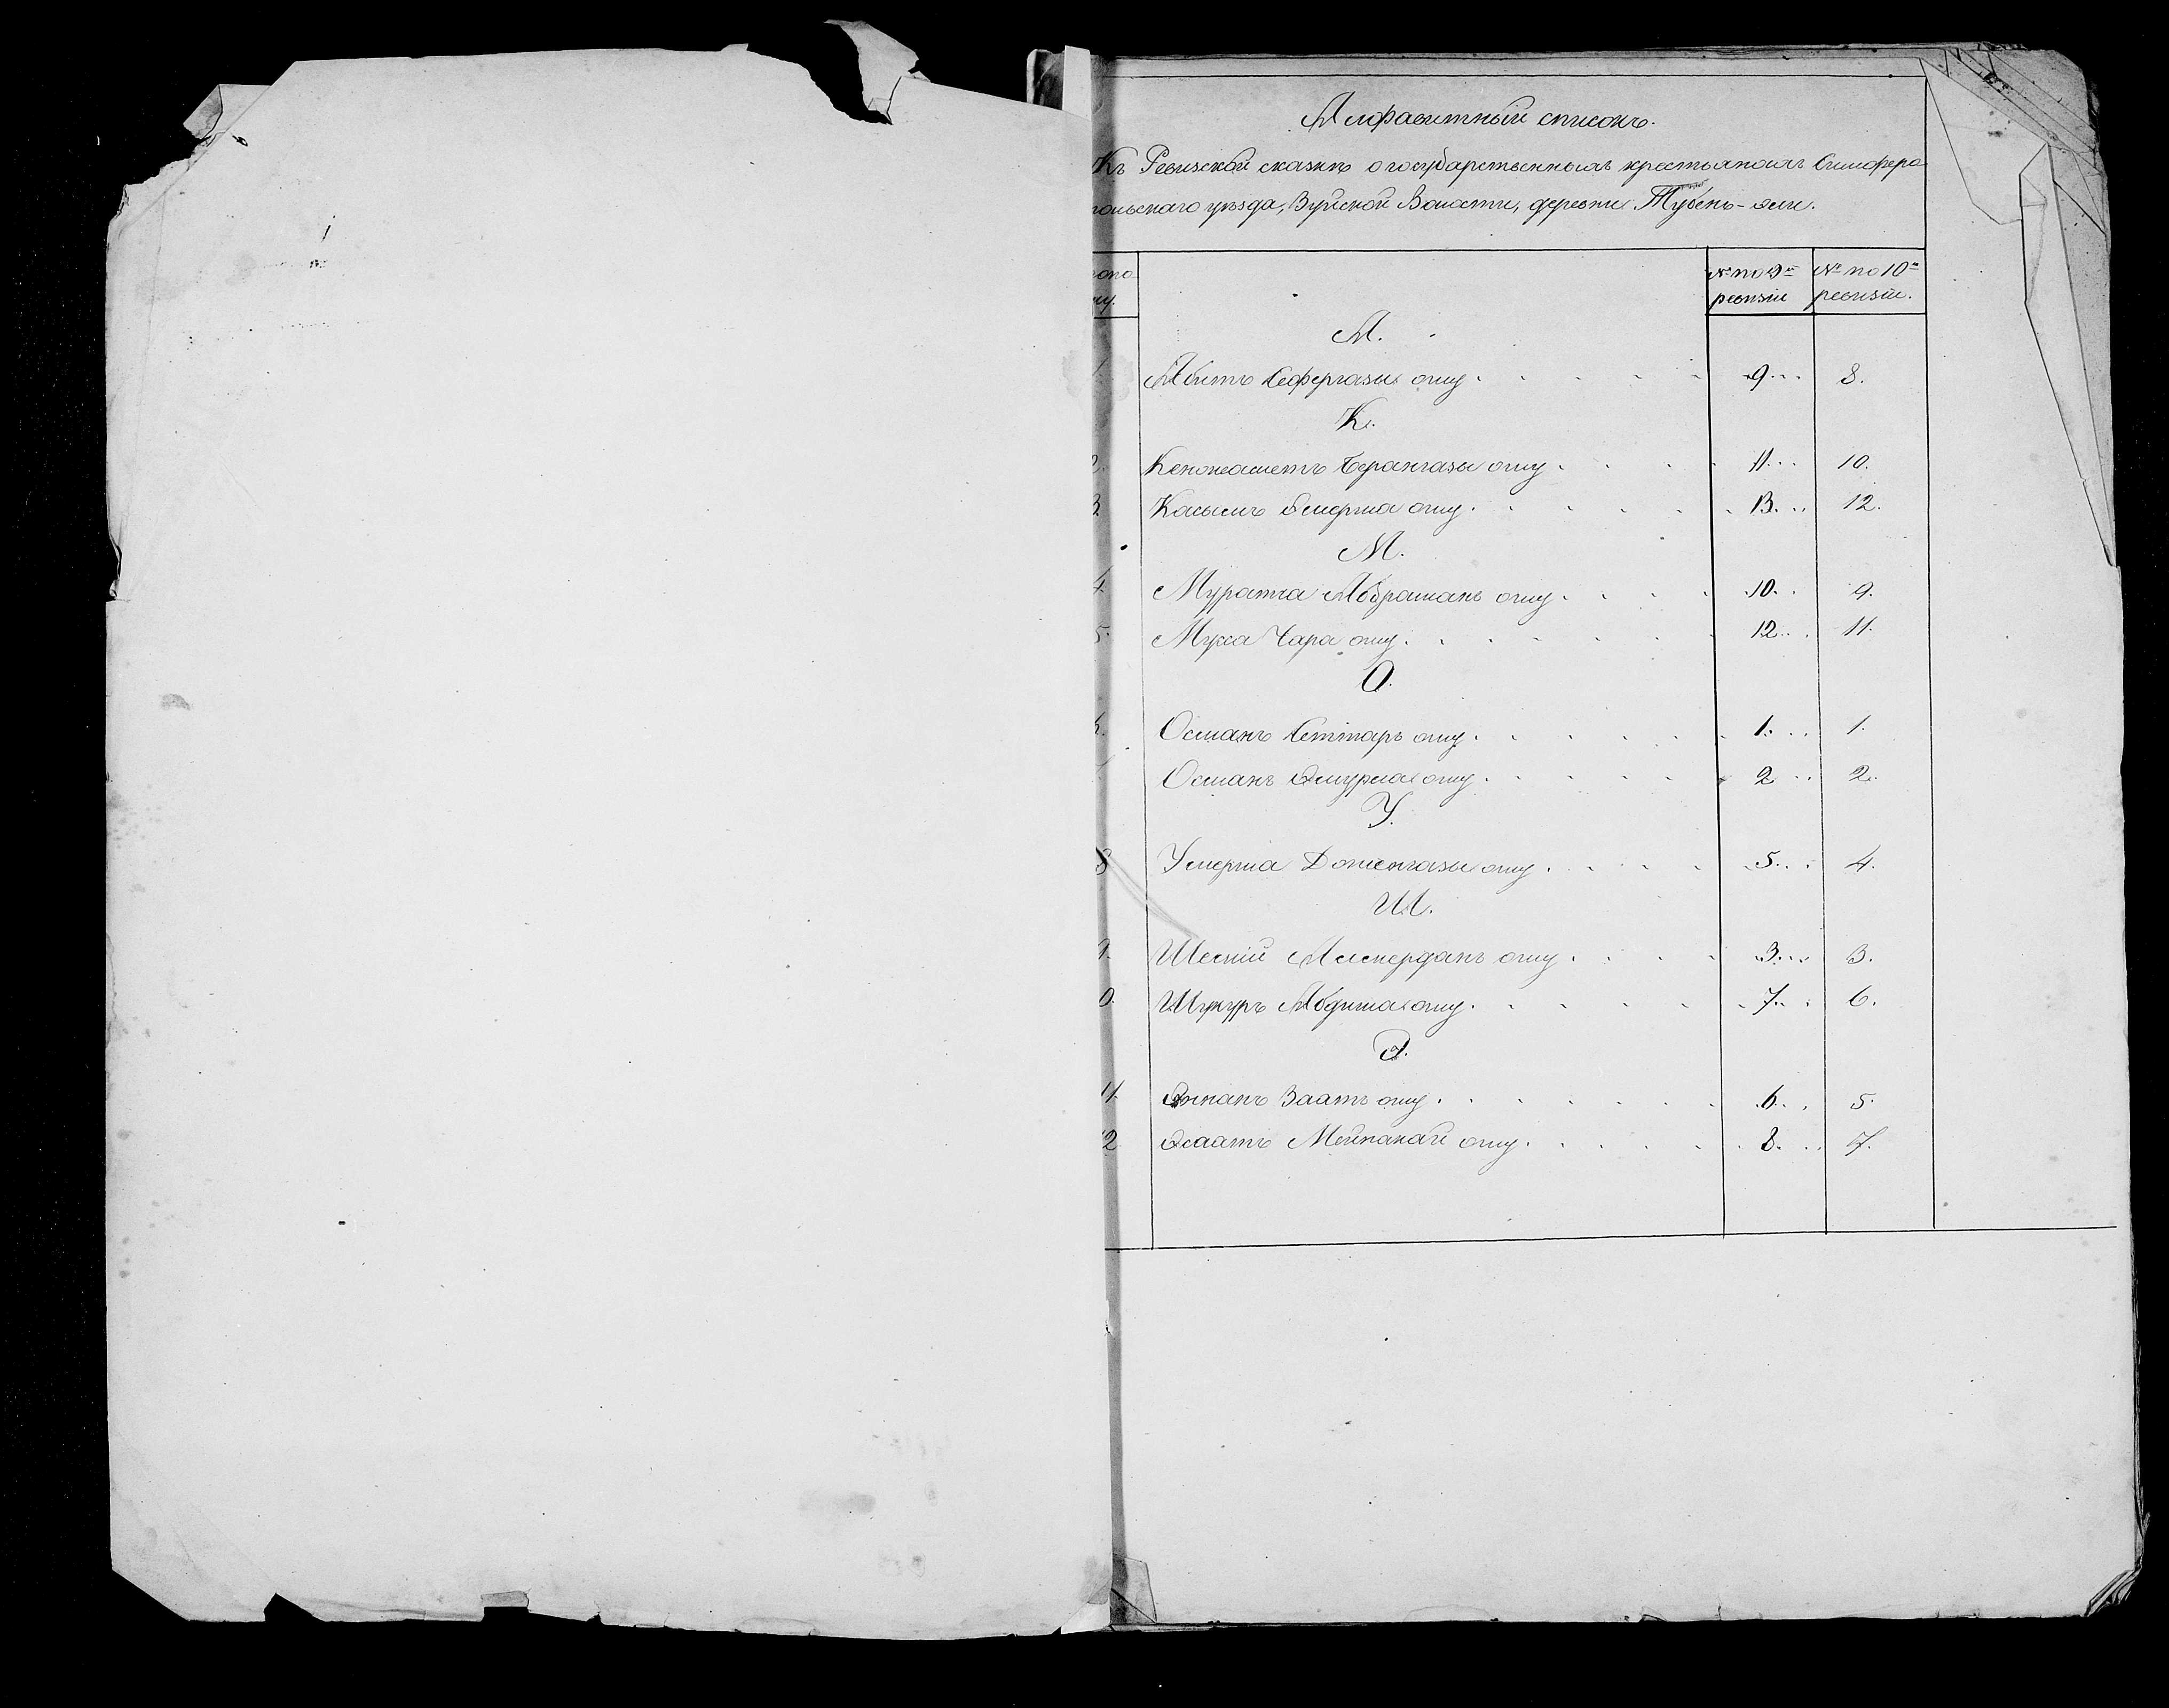 Алфавитный списокъ.
Къ Ревизской сказкѣ о государственныхъ крестьянахъ Симферо
польскаго уѣзда, Зуйской Волости, деревни Тубень-эли.
№ по 9й № по 10й
ревизіи ревизіи.
А.
1. Абитъ Сефергазы оглу 9. 8.
К.
2. Кенжаметъ Черангазы оглу 11. 10.
3. Касымъ Умерша оглу 13. 12.
М.
4. Муратша Абдраманъ оглу 10. 9.
5. Мусса Чара оглу 12. 11.
О.
Османъ Сеттаръ оглу 1. 1.
Османъ оглу 2. 2.
У.
8 Умерша оглу 5. 4.
Ш.
9. оглу 3. 3.
0. Шукуръ Абдиша оглу 7. 6.
Э.
11. Заатъ оглу 6. 5.
12 Эсаатъ оглу 8. 7.